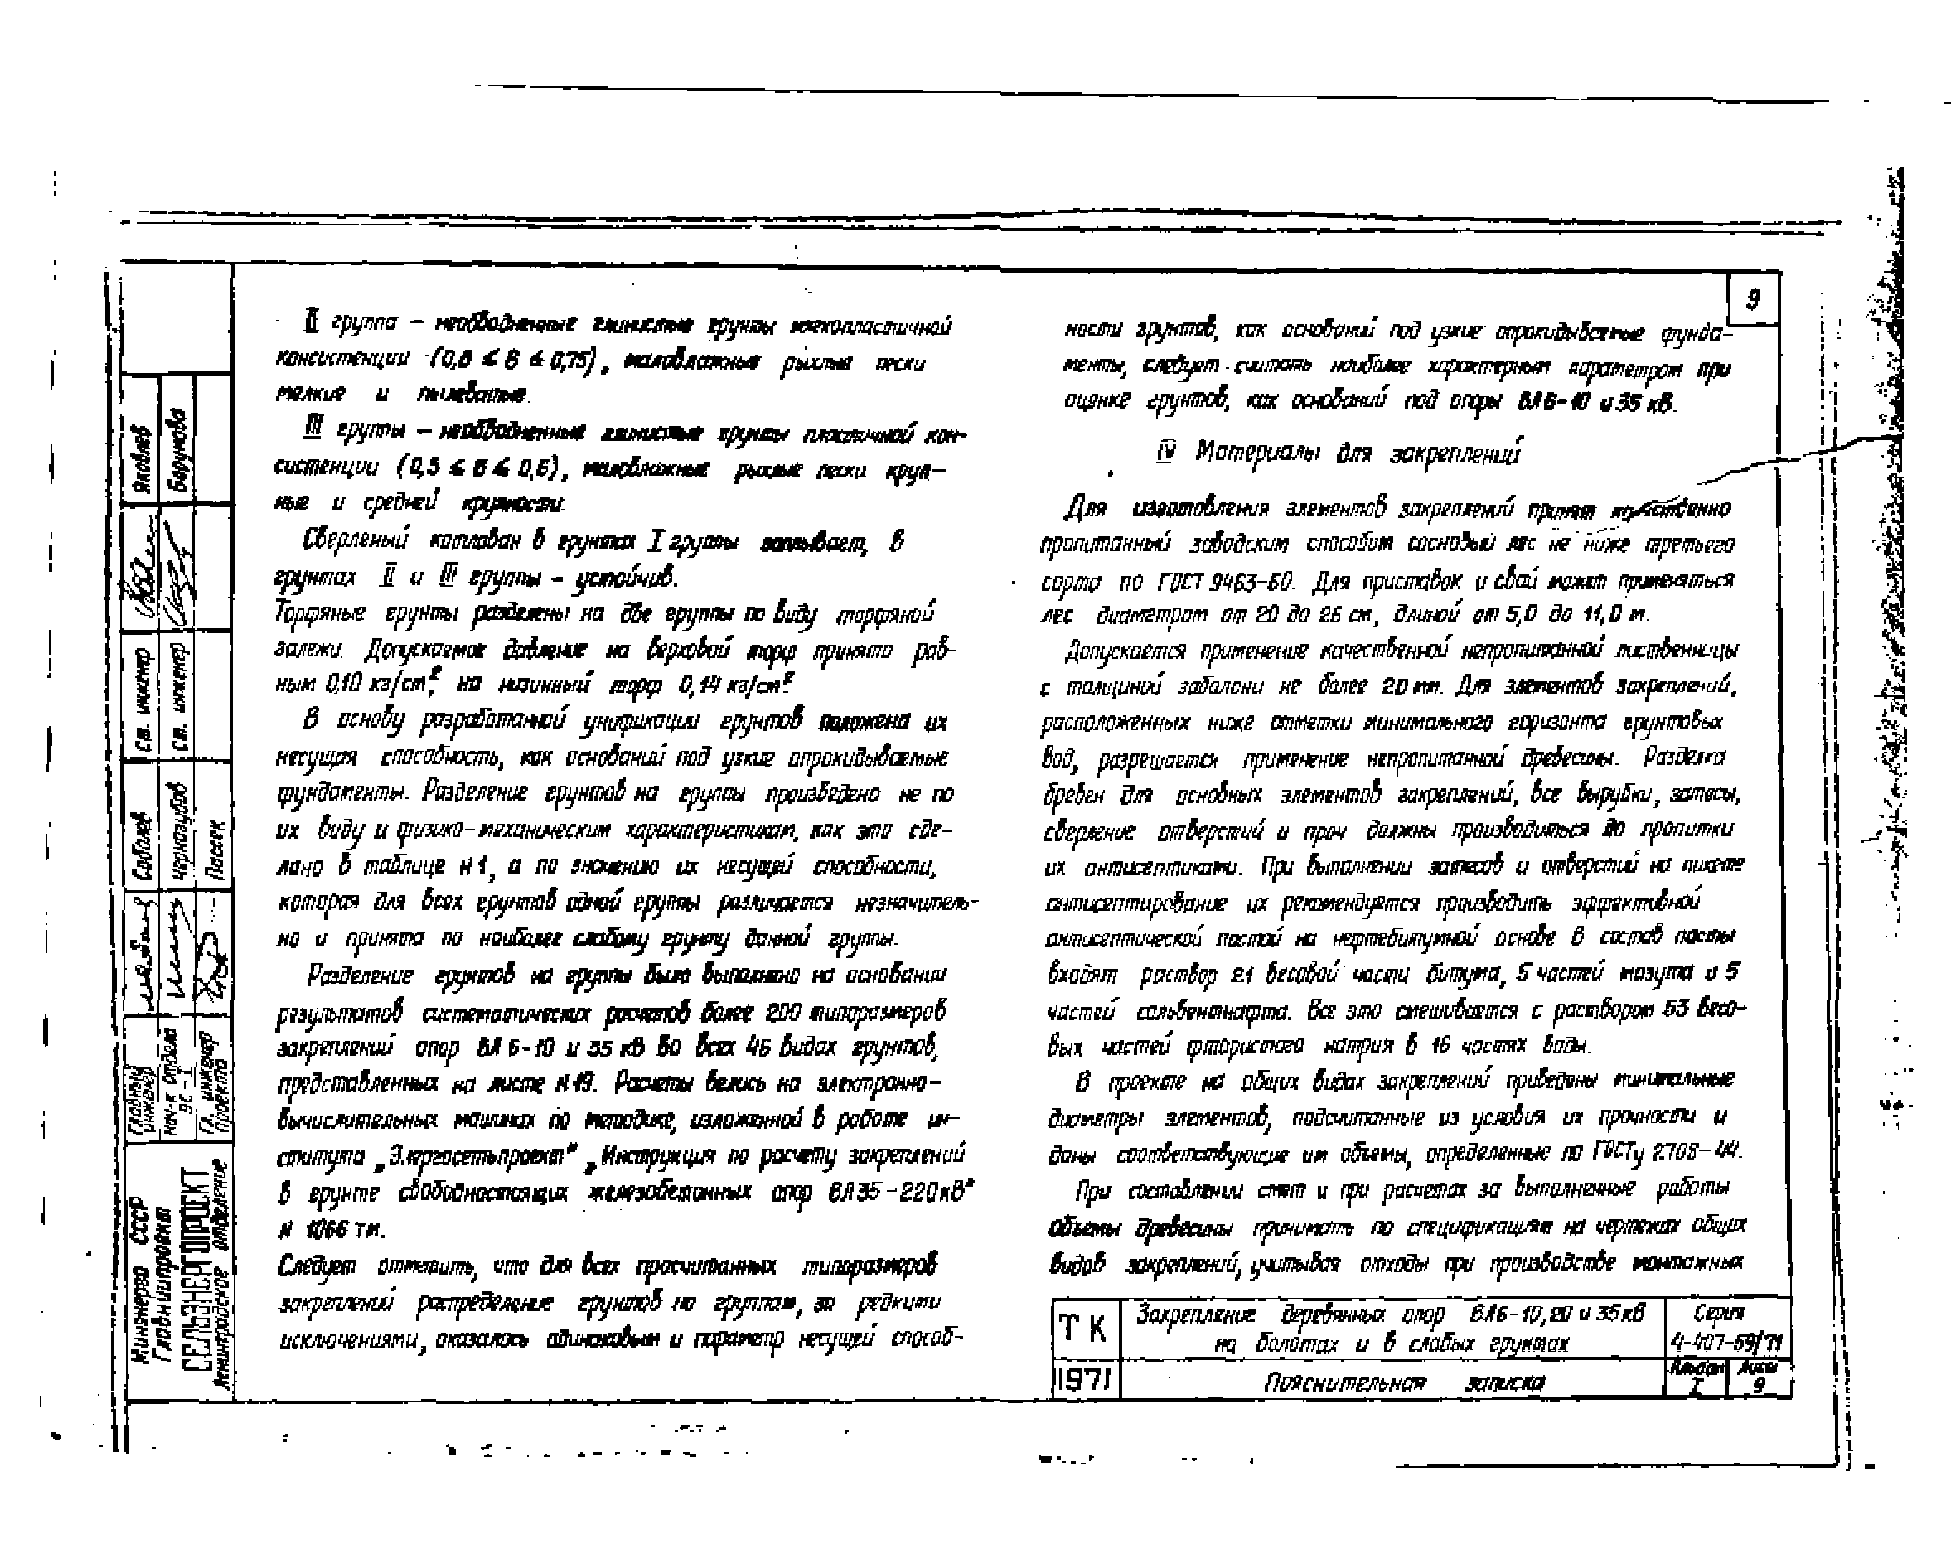 9
II группа – необводненные глинистые грунты мягкопластичной
консистенции (0,6 ≤ В ≤ 0,75), маловлажные рыхлые пески
мелкие и пылеватые.
III группы – необводненные глинистые грунты пластичной кон-
систенции (0,5 ≤ В ≤ 0,6), маловлажные рыхлые пески круп-
ные и средней крупности.
Сверленый котлован в грунтах I группы заплывает, в
грунтах II и III группы – устойчив.
Торфяные грунты разделены на две группы по виду торфяной
залежи. Допускаемое давление на верховой торф принято рав-
ным 0,10 кг/см², на низинный торф 0,14 кг/см².
В основу разработанной унификации грунтов положена их
несущая способность, как оснований под узкие опрокидываемые
фундаменты. Разделение грунтов на группы произведено не по
их виду и физико-механическим характеристикам, как это сде-
лано в таблице N1, а по значению их несущей способности,
которая для всех грунтов одной группы различается незначитель-
но и принята по наиболее слабому грунту данной группы.
Разделение грунтов на группы было выполнено на основании
результатов систематических расчетов более 200 типоразмеров
закреплений опор ВЛ 6-10 и 35 кВ во всех 46 видах грунтов,
представленных на листе N19. Расчеты велись на электронно-
вычислительных машинах по методике, изложенной в работе ин-
ститута „Энергосетьпроект" „Инструкция по расчету закреплений
в грунте свободностоящих железобетонных опор ВЛ 35-220 кВ"
N 1066 тм.
Следует отметить, что для всех просчитанных типоразмеров
закреплений распределение грунтов по группам, за редкими
исключениями, оказалось одинаковым и параметр несущей способ-
ности грунтов, как оснований под узкие опрокидываемые фунда-
менты, следует считать наиболее характерным параметром при
оценке грунтов, как оснований под опоры ВЛ 6-10 и 35 кВ.
IV Материалы для закреплений
Для изготовления элементов закреплений принят качественно
пропитанный заводским способом сосновый лес не ниже третьего
сорта по ГОСТ 9463-60. Для приставок и свай может применяться
лес диаметром от 20 до 26 см, длиной от 5,0 до 11,0 м.
Допускается применение качественной непропитанной лиственницы
с толщиной заболони не более 20 мм. Для элементов закреплений,
расположенных ниже отметки минимального горизонта грунтовых
вод, разрешается применение непропитанной древесины. Разделка
бревен для основных элементов закреплений, все вырубки, затесы,
сверление отверстий и проч должны производиться до пропитки
их антисептиками. При выполнении затесов и отверстий на пикете
антисептирование их рекомендуется производить эффективной
антисептической пастой на нефтебитумной основе В состав пасты
входят раствор 21 весовой части битума, 5 частей мазута и 5
частей сольвентнафта. Все это смешивается с раствором 53 весо-
вых частей фтористого натрия в 16 частях воды.
В проекте на общих видах закреплений приведены минимальные
диаметры элементов, подсчитанные из условия их прочности и
даны соответствующие им объемы, определенные по ГОСТу 2708-44.
При составлении смет и при расчетах за выполненные работы
объемы древесины принимать по спецификациям на чертежах общих
видов закреплений, учитывая отходы при производстве монтажных
ТК
1971
Закрепление деревянных опор ВЛ6-10, 20 и 35 кВ
на болотах и в слабых грунтах
Пояснительная записка
Серия
4-407-59/71
Альбом I
Лист 9
Яковлев
Баринова
Ст. инженер
Ст. инженер
Соболев
Черногубов
Пассек
Главный инженер
Нач-к отдела
ВС-I
Гл. инженер проекта
Минэнерго СССР
Главниипроект
СЕЛЬЭНЕРГОПРОЕКТ
Ленинградское отделение